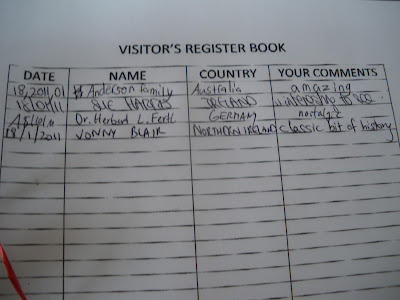 VISITOR'S REGISTER BOOK
DATE NAME COUNTRY YOUR COMMENTS
18,2011,01 Anderson Family Australia amazing
18/01/11 SUE IRELAND
Dr. Herbert L. Fertl GERMANY nostalgic
18/1/2011 JONNY BLAIR NORTHERN IRELAND classic bit of history